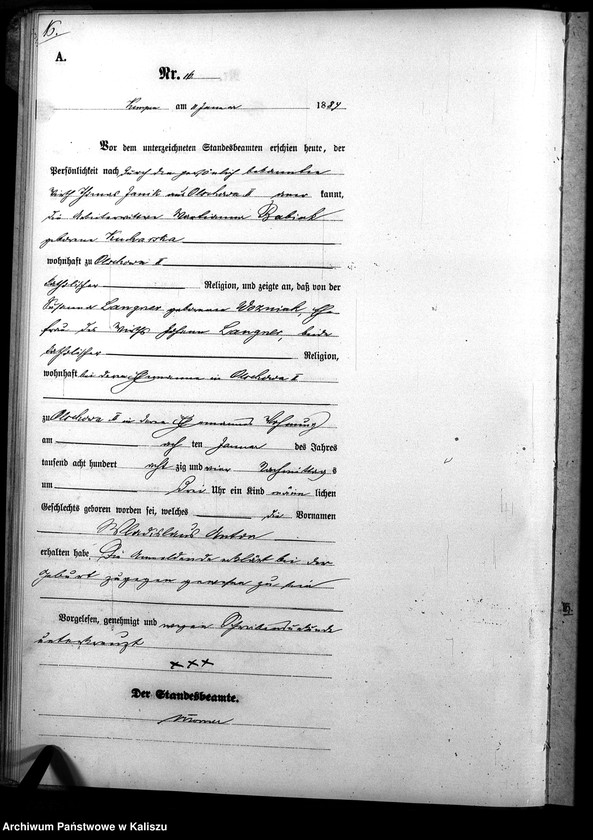 A.
Nr. 16
Kempen am 11 Januar 1884
Vor dem unterzeichneten Standesbeamten erschien heute, der
Persönlichkeit nach durch den persönlich bekannten
Wirth Thomas Janik aus Olschowa II kannt,
die Arbeiterwittwe Marianna
geborene
wohnhaft zu Olschowa II
katholischer Religion, und zeigte an, daß von der
Susanna Langner geborenen Wozniak, Ehe
frau des Wirths Johann Langner, beide
katholischer Religion,
wohnhaft bei deren Ehemanne in Olschowa II
zu Olschowa II in deren Ehemannes Wohnung
am ach ten Januar des Jahres
tausend acht hundert acht zig und vier Nachmittags
um Drei Uhr ein Kind männ lichen
Geschlechts geboren worden sei, welches die Vornamen
Wladislaus Anton
erhalten habe. Die Anmeldende erklärt bei der
Geburt zugegen gewesen zu sein
Vorgelesen, genehmigt und wegen Schreibensunkunde
unterkreuzt
+++
Der Standesbeamte.
Archiwum Państwowe w Kaliszu